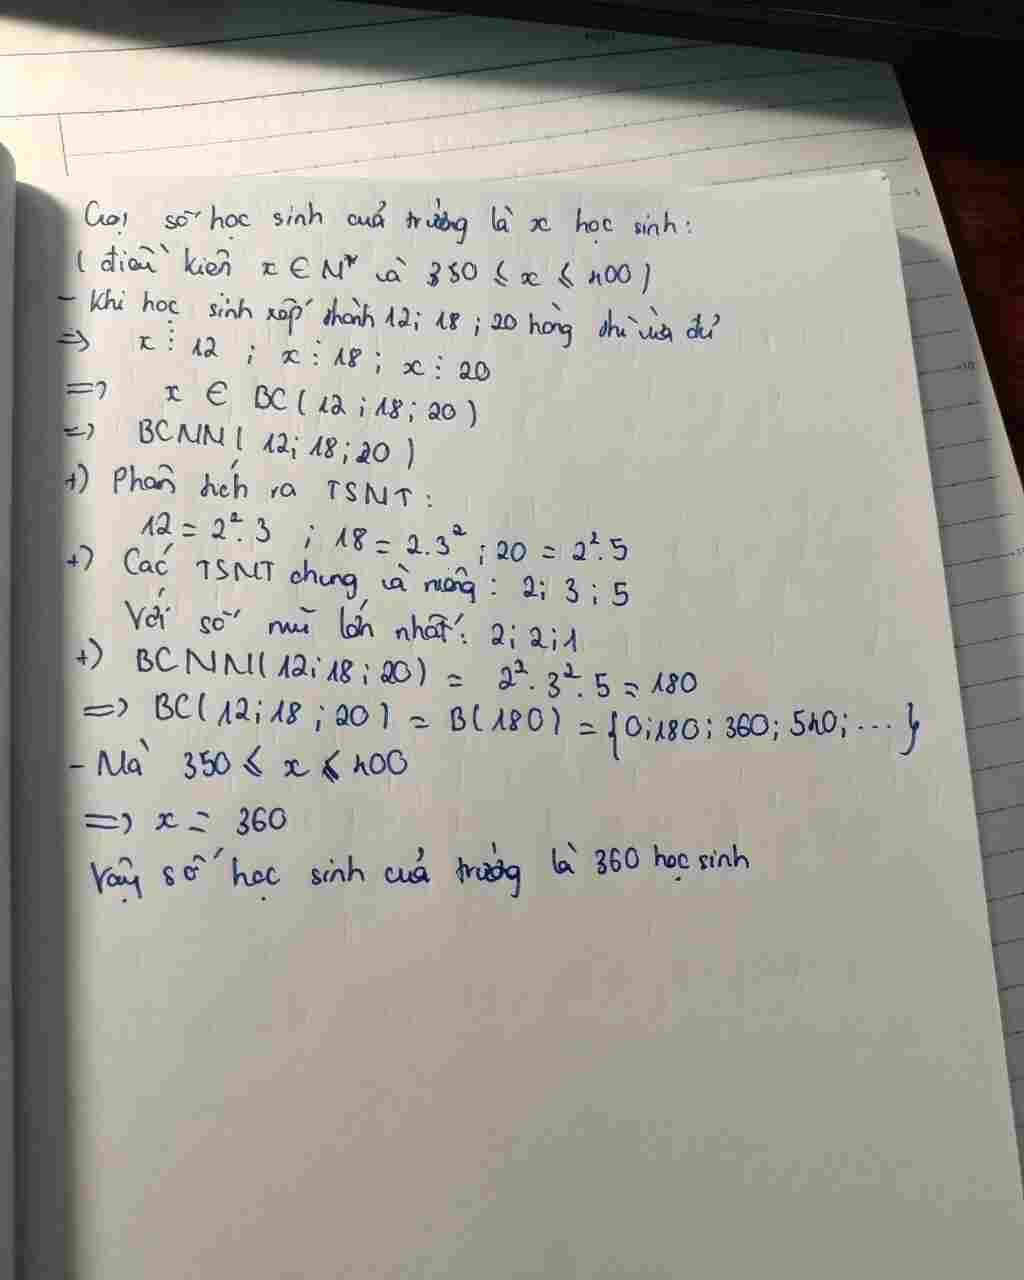 Gọi số học sinh của trường là x học sinh:
( điều kiện x ∈ N* và 350 ≤ x ≤ 400 )
- Khi học sinh xếp thành 12; 18 ; 20 hàng thì vừa đủ
=> x ⋮ 12 ; x ⋮ 18 ; x ⋮ 20
=> x ∈ BC ( 12 ; 18 ; 20 )
=> BCNN ( 12; 18 ; 20 )
+) Phân tích ra TSNT :
12 = 2². 3 ; 18 = 2.3² ; 20 = 2².5
+) Các TSNT chung và riêng : 2; 3 ; 5
Với số mũ lớn nhất : 2; 2; 1
+) BCNN( 12; 18 ; 20 ) = 2². 3². 5 = 180
=> BC( 12; 18 ; 20 ) = B( 180 ) = { 0; 180; 360; 540; ... }
- Mà 350 ≤ x ≤ 400
=> x = 360
Vậy số học sinh của trường là 360 học sinh